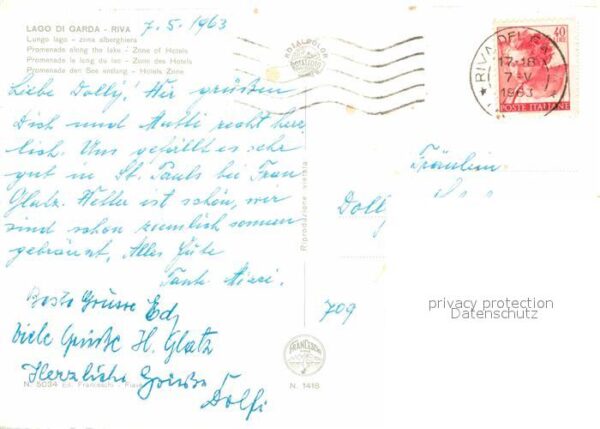 LAGO DI GARDA - RIVA
7.5.1963
Lungo lago - zona alberghiera
Promenade along the lake - Zone of Hotels
Promenade le long du lac - Zone des Hotels
Promenade den See entlang - Hotels Zone
Liebe Dolly! Wir grüßen
Dich und Mutti recht herz
lich. Uns gefällt es sehr
gut in St. Pauls bei Frau
Glatz. Wetter ist schön, wir
sind schon ziemlich sonnen
gebräunt. Alles Gute
Tante Mizzi.
Beste Grüsse Edy
Viele Grüße H. Glatz
Herzliche Grüße
Dolfi
N. 5034 Ed. Franceschi - Riva
Riproduzione vietata
FRANCESCHI
N. 1418
KODALCOLOR
RIVA DEL GA
17-18
7-V
1963
40
POSTE ITALIANE
Fräulein
Dolly
709
privacy protection
Datenschutz